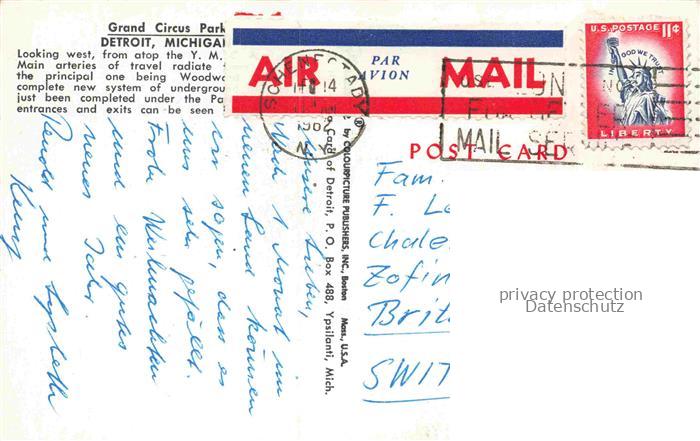 Grand Circus Park
DETROIT, MICHIGAN
Looking west, from atop the Y. M.
Main arteries of travel radiate
the principal one being Woodw
complete new system of undergrou
just been completed under the Pa
entrances and exits can be seen
AIR
PAR
AVION
MAIL
U.S. POSTAGE 11¢
IN GOD WE TRUST
LIBERTY
SCHENECTADY
14
1962
MAIL SER
POST CARD
by COLOURPICTURE PUBLISHERS, INC., Boston Mass., U.S.A.
Card of Detroit, P. O. Box 488, Ypsilanti, Mich.
Lieben,
Nach 1 Monat im
neuen Land können
wir sagen, dass es
uns sehr gefällt.
Frohe Weihnachten
und ein gutes
neues Jahr.
und Lysbeth
Fam.
F. Le
Chale
Zofin
Brit
SWIT
privacy protection
Datenschutz